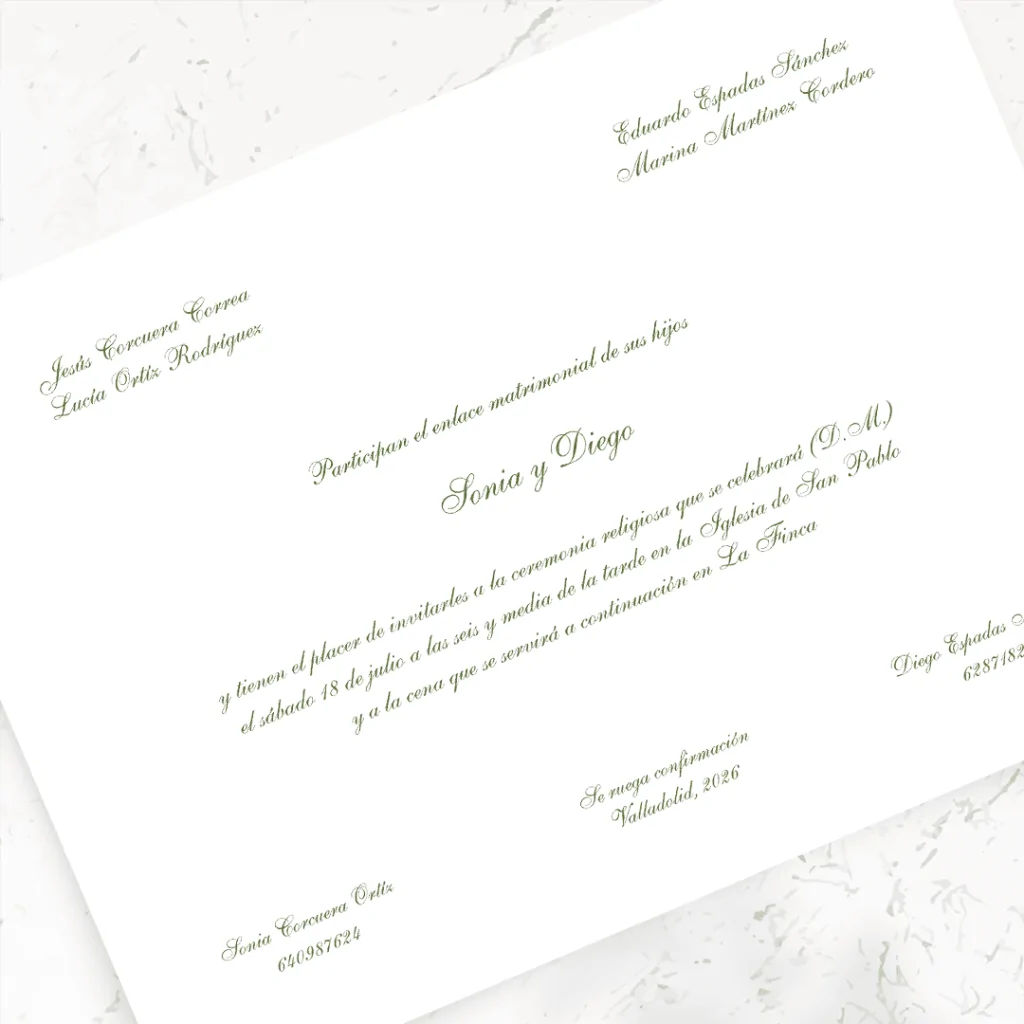 Jesús Corcuera Correa
Lucía Ortíz Rodríguez
Eduardo Espadas Sánchez
Marina Martínez Cordero
Participan el enlace matrimonial de sus hijos
Sonia y Diego
y tienen el placer de invitarles a la ceremonia religiosa que se celebrará (D.M.)
el sábado 18 de julio a las seis y media de la tarde en la Iglesia de San Pablo
y a la cena que se servirá a continuación en La Finca
Se ruega confirmación
Valladolid, 2026
Sonia Corcuera Ortíz
640987624
Diego Espadas
6287182